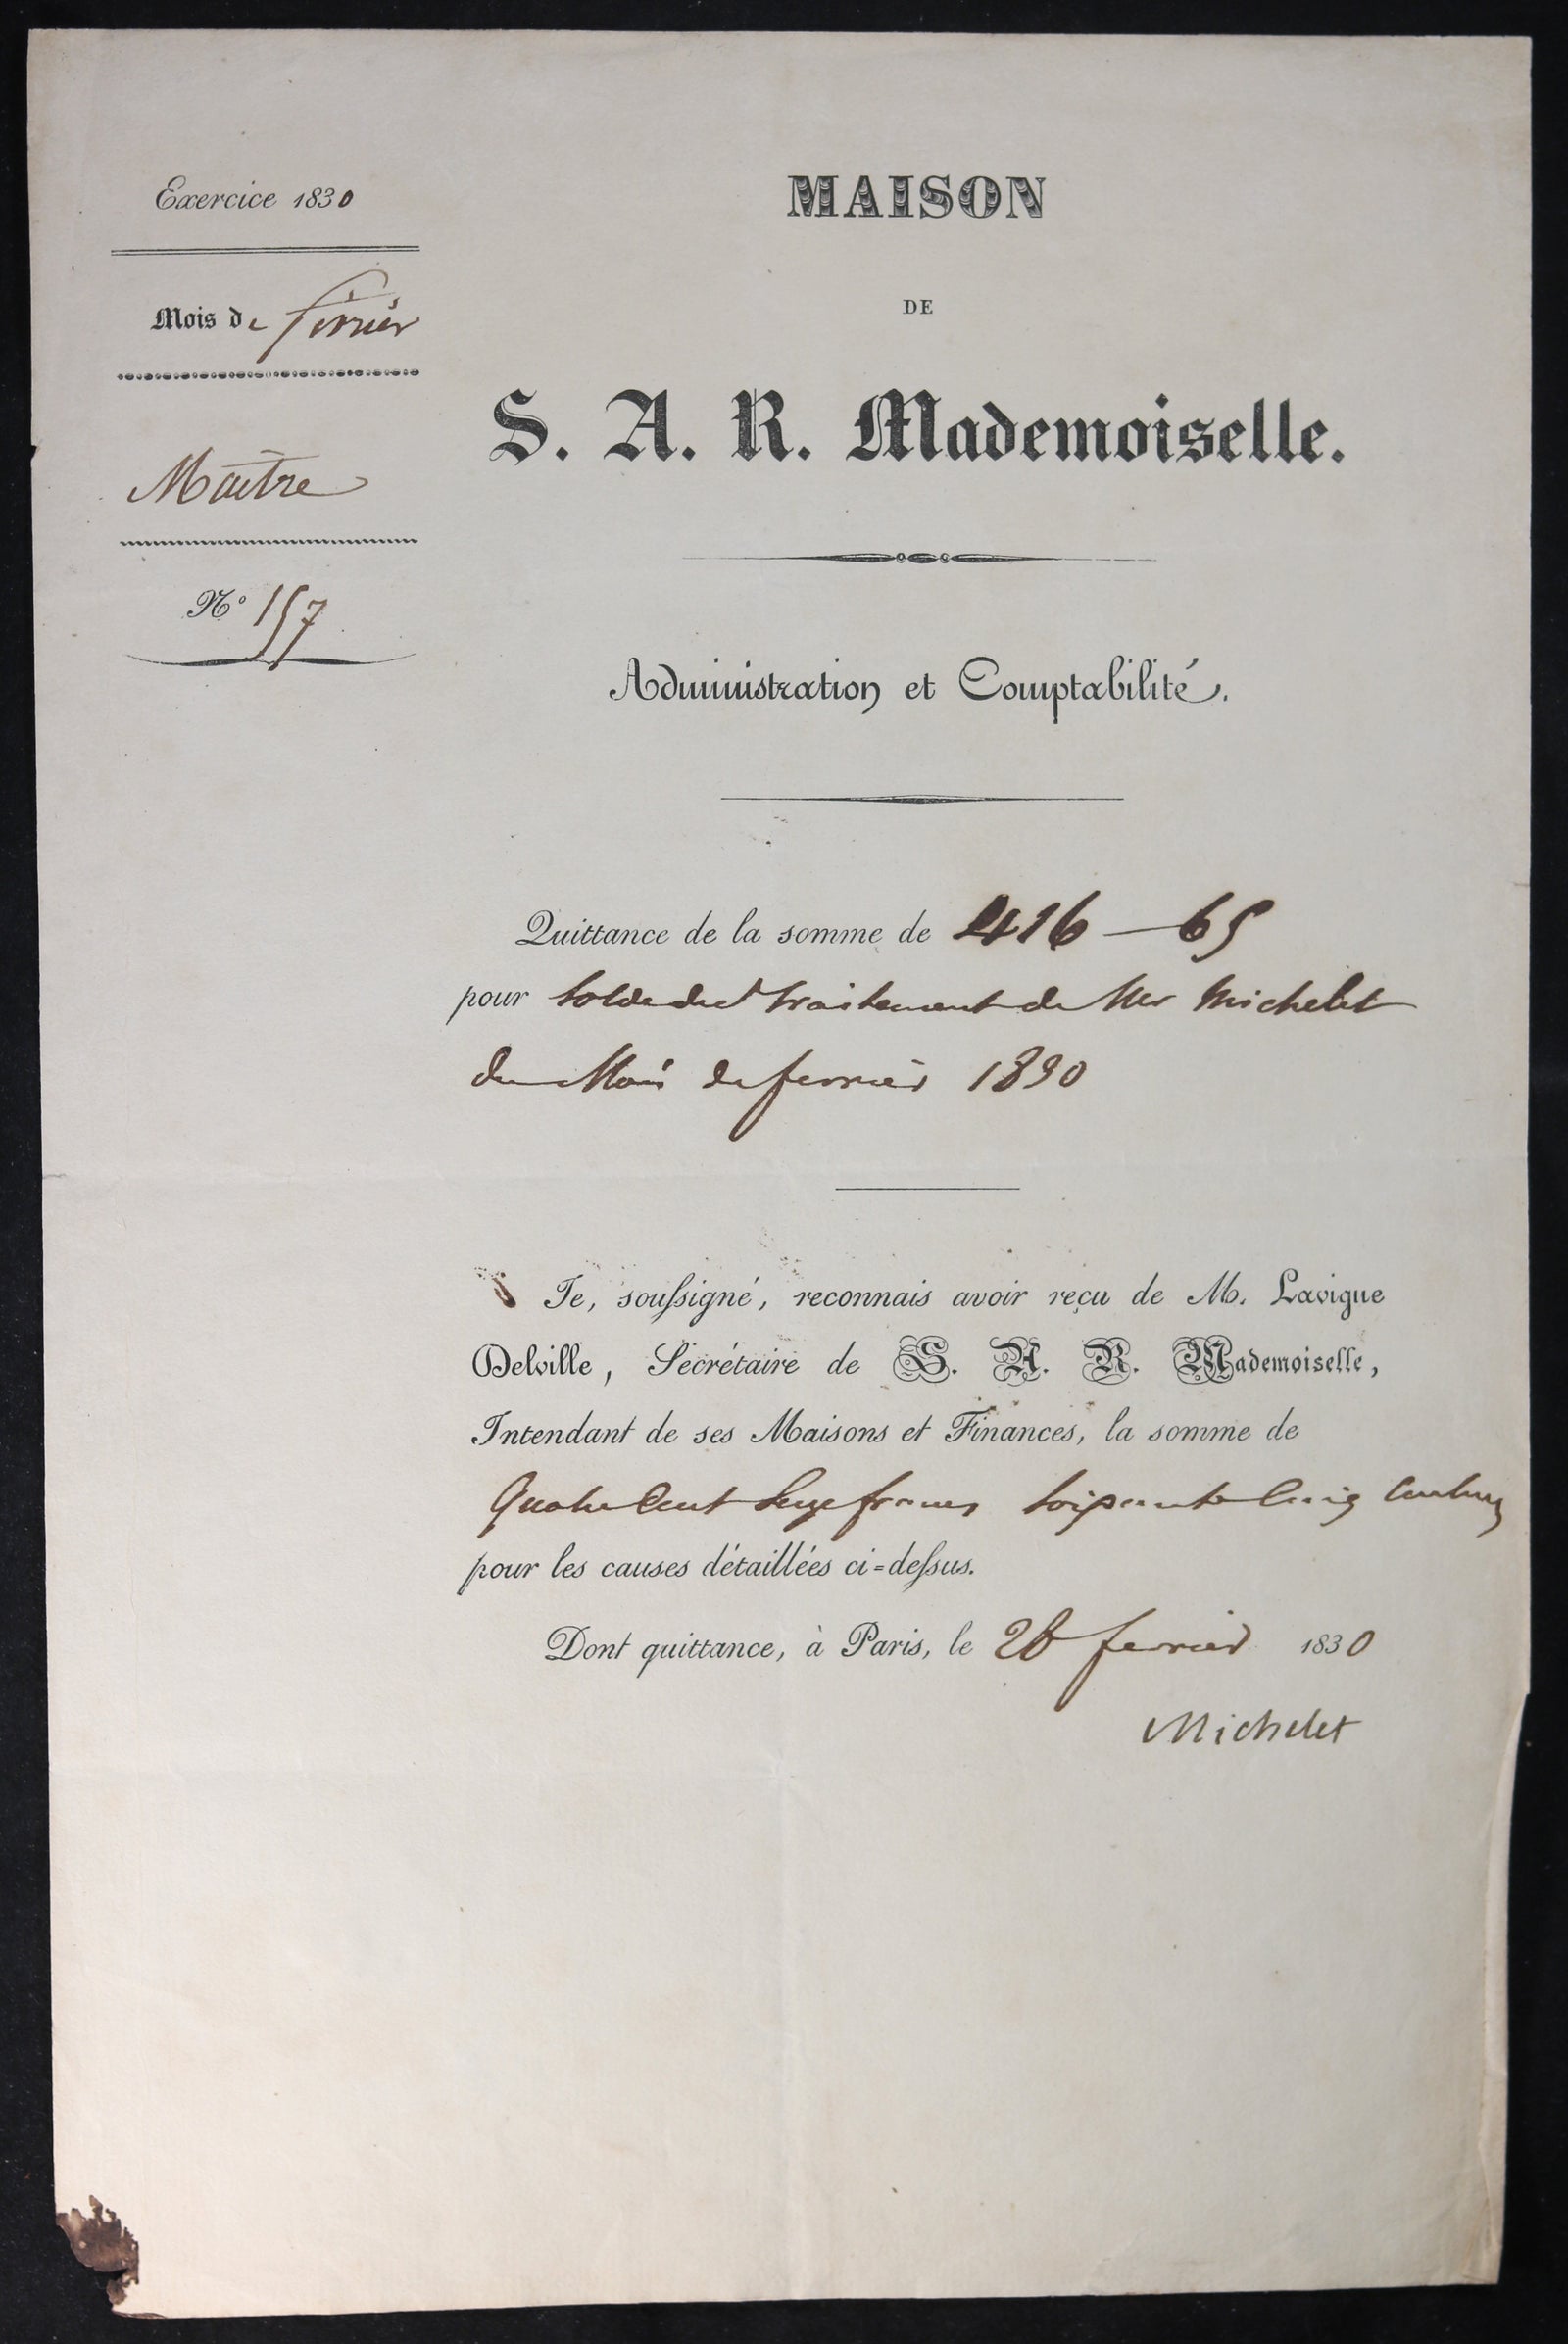 Exercice 1830
Mois de février
Maître
N° 157
MAISON
DE
S. A. R. Mademoiselle.
Administration et Comptabilité.
Quittance de la somme de 416 — 65
pour solde du traitement de Mr Michelet
du Mois de fevrier 1830
Je, soussigné, reconnais avoir reçu de M. Lavigne
Delville, Secrétaire de S. A. R. Mademoiselle,
Intendant de ses Maisons et Finances, la somme de
Quatre Cent Seize francs Soixante Cinq Centimes
pour les causes détaillées ci=dessus.
Dont quittance, à Paris, le 28 fevrier 1830
Michelet